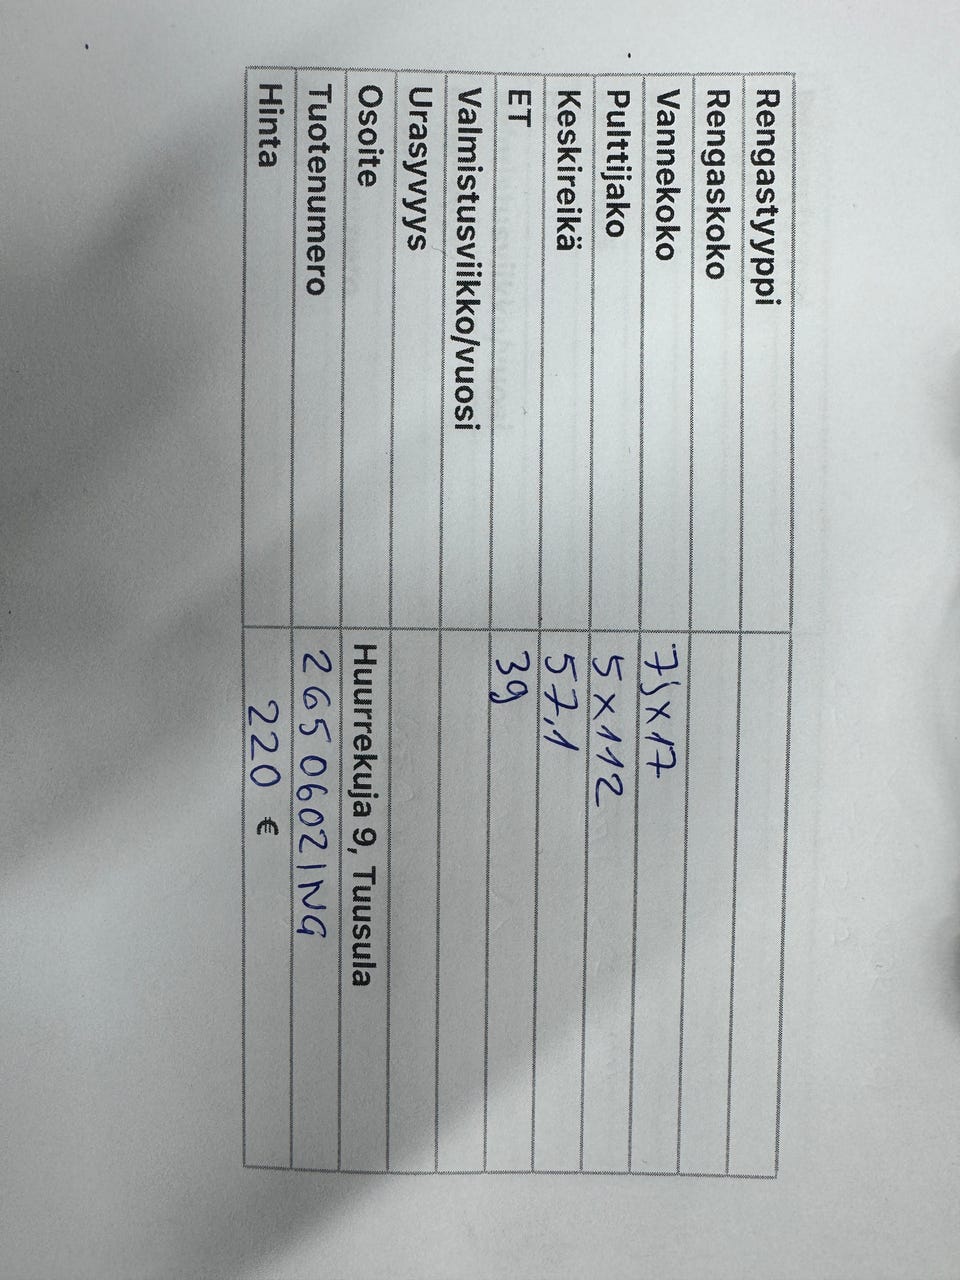 Rengastyyppi
Rengaskoko
Vannekoko 7Jx17
Pulttijako 5x112
Keskireikä 57,1
ET 39
Valmistusviikko/vuosi
Urasyvyys
Osoite Huurrekuja 9, Tuusula
Tuotenumero 2650602ING
Hinta 220 €